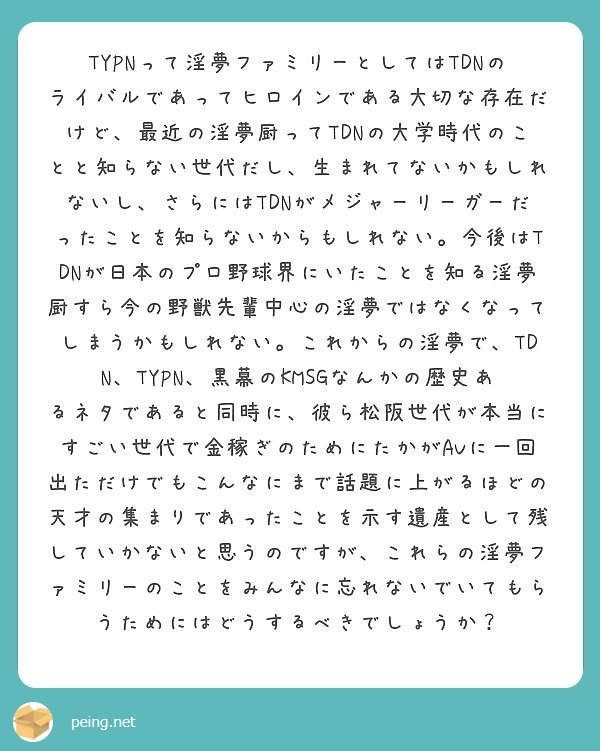 TYPNって淫夢ファミリーとしてはTDNの
ライバルであってヒロインである大切な存在だ
けど、最近の淫夢厨ってTDNの大学時代のこ
とと知らない世代だし、生まれてないかもしれ
ないし、さらにはTDNがメジャーリーガーだ
ったことを知らないからもしれない。今後はT
DNが日本のプロ野球界にいたことを知る淫夢
厨すら今の野獣先輩中心の淫夢ではなくなって
しまうかもしれない。これからの淫夢で、TD
N、TYPN、黒幕のKMSGなんかの歴史あ
るネタであると同時に、彼ら松阪世代が本当に
すごい世代で金稼ぎのためにたかがAvに一回
出ただけでもこんなにまで話題に上がるほどの
天才の集まりであったことを示す遺産として残
していかないと思うのですが、これらの淫夢フ
ァミリーのことをみんなに忘れないでいてもら
うためにはどうするべきでしょうか?
peing.net